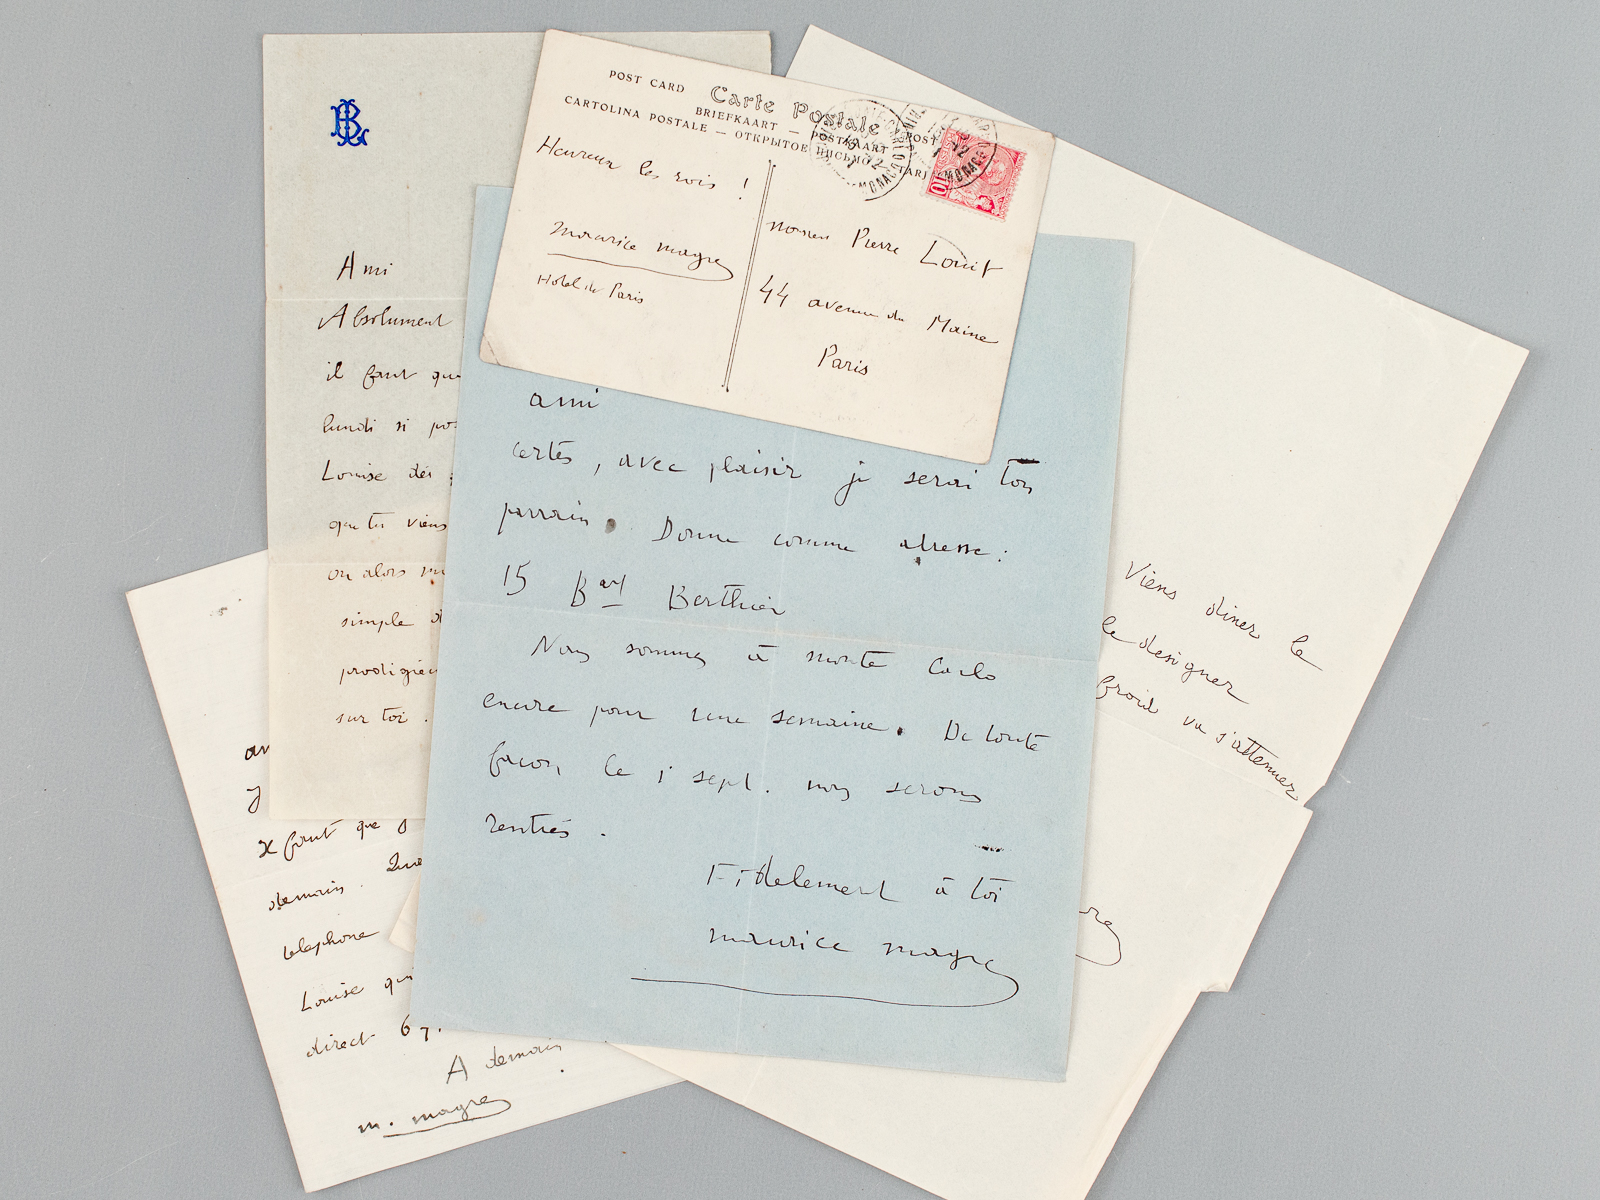 POST CARD Carte Postale
BRIEFKAART — POSTKAART
CARTOLINA POSTALE — ОТКРЫТОЕ ПИСЬМО
Heureux les rois !
maurice magre
Hotel de Paris
Pierre Louit
44 avenue du Maine
Paris
10
MONACO
MONACO
BL
Ami
Absolument
il faut que
lundi si
Louise dès
que tu viens
ou alors
simple
sur toi .
ami
certes, avec plaisir je serai ton
parrain. Donne comme adresse :
15 Bard Berthier
Nous sommes à monte Carlo
encore pour une semaine. De toute
façon, le 1 sept. nous serons
rentrés .
Fidelement à toi
maurice magre
Viens diner le
le designer
froid va s'attenuer
faut que
demain.
telephone
Louise
direct 67.
A demain
m. magre